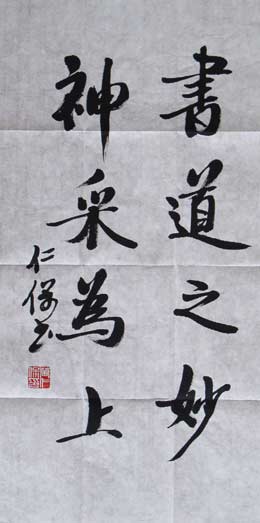 書道之妙
神采為上
仁保书